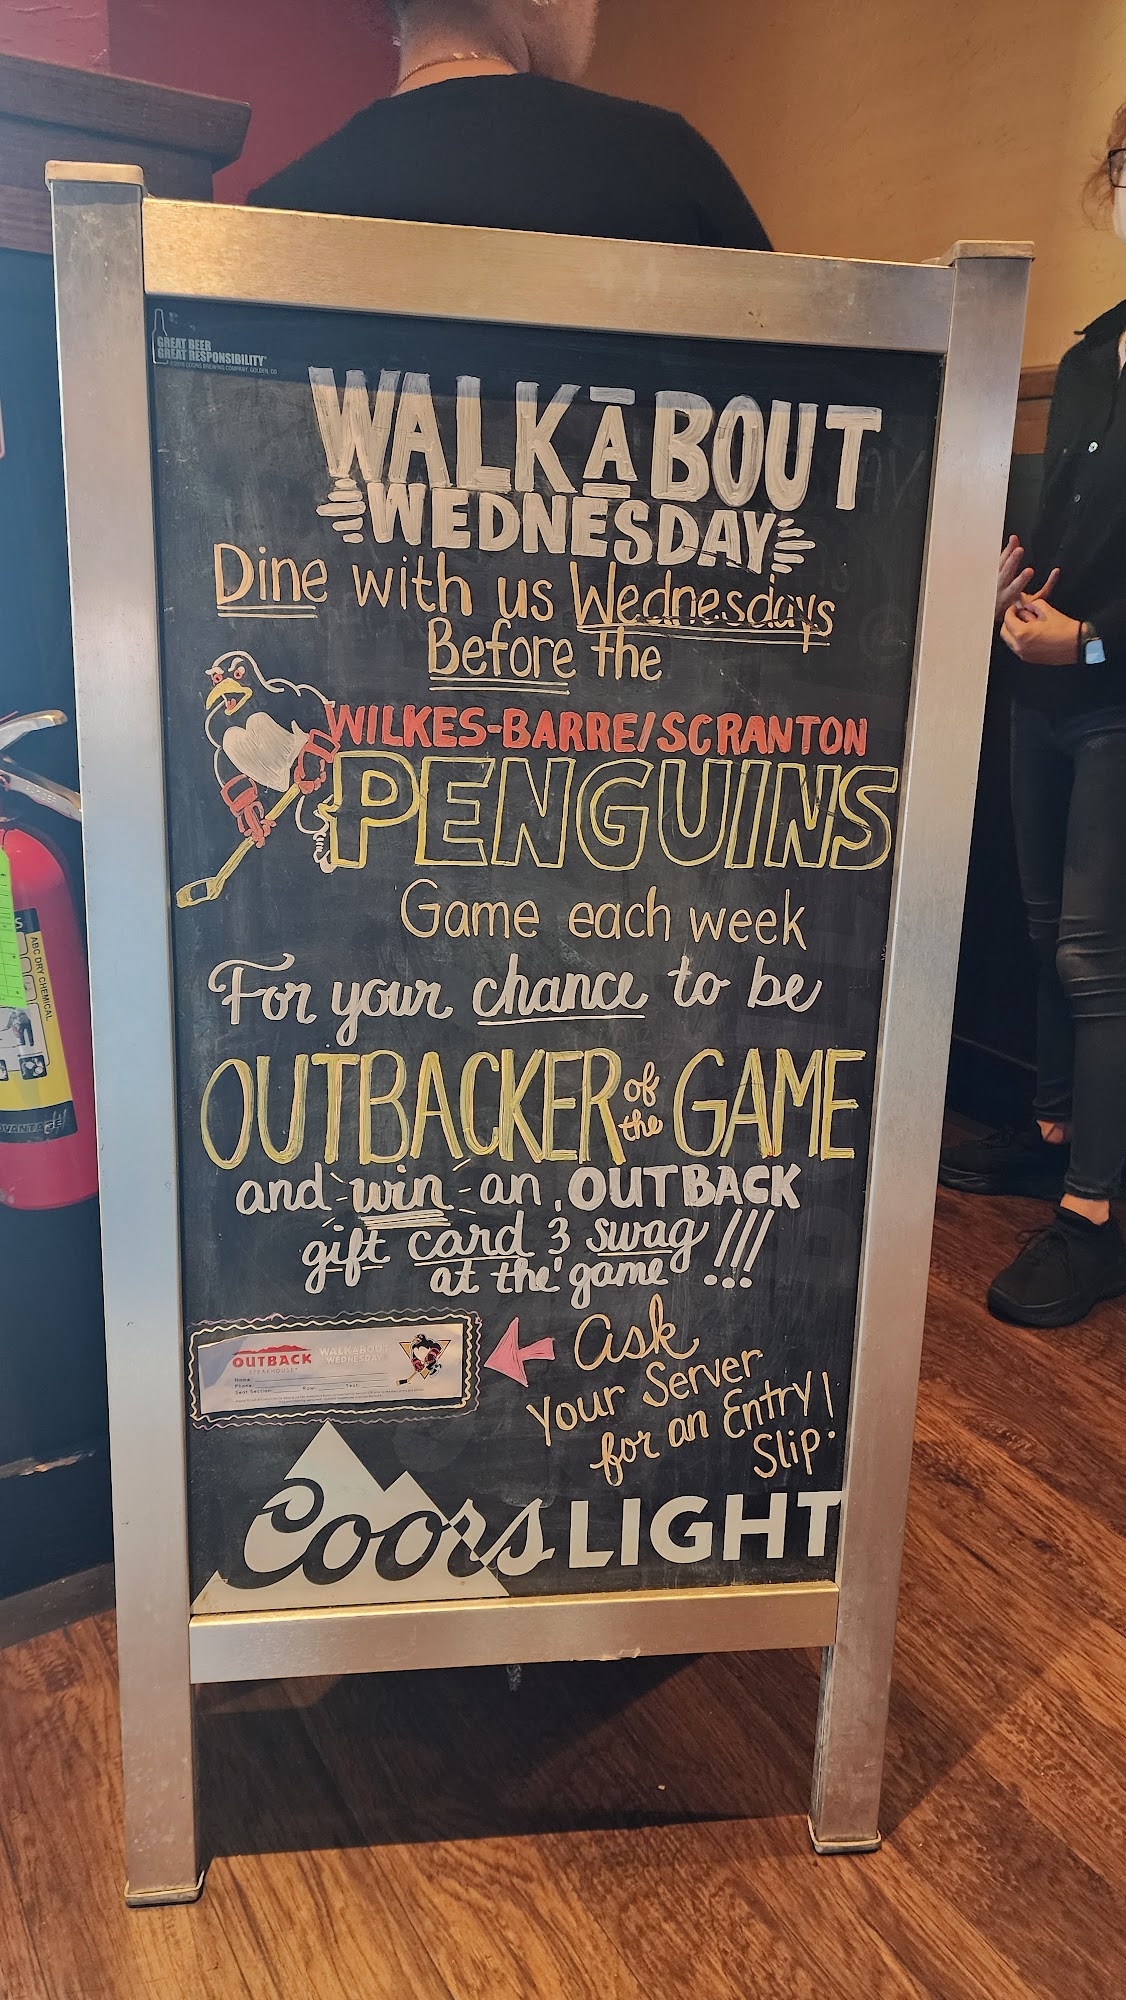 GREAT BEER
GREAT RESPONSIBILITY
COORS BREWING COMPANY, GOLDEN, CO
WALKABOUT
WEDNESDAY
Dine with us Wednesdays
Before the
WILKES-BARRE/SCRANTON
PENGUINS
Game each week
For your chance to be
OUTBACKER of the GAME
and win an OUTBACK
gift card & swag !!!
at the game
OUTBACK
STEAKHOUSE
WALKABOUT
WEDNESDAY
Name:
Phone:
Seat Section: Row:
Ask
Your Server
for an Entry
Slip!
Coors LIGHT
ABC DRY CHEMICAL